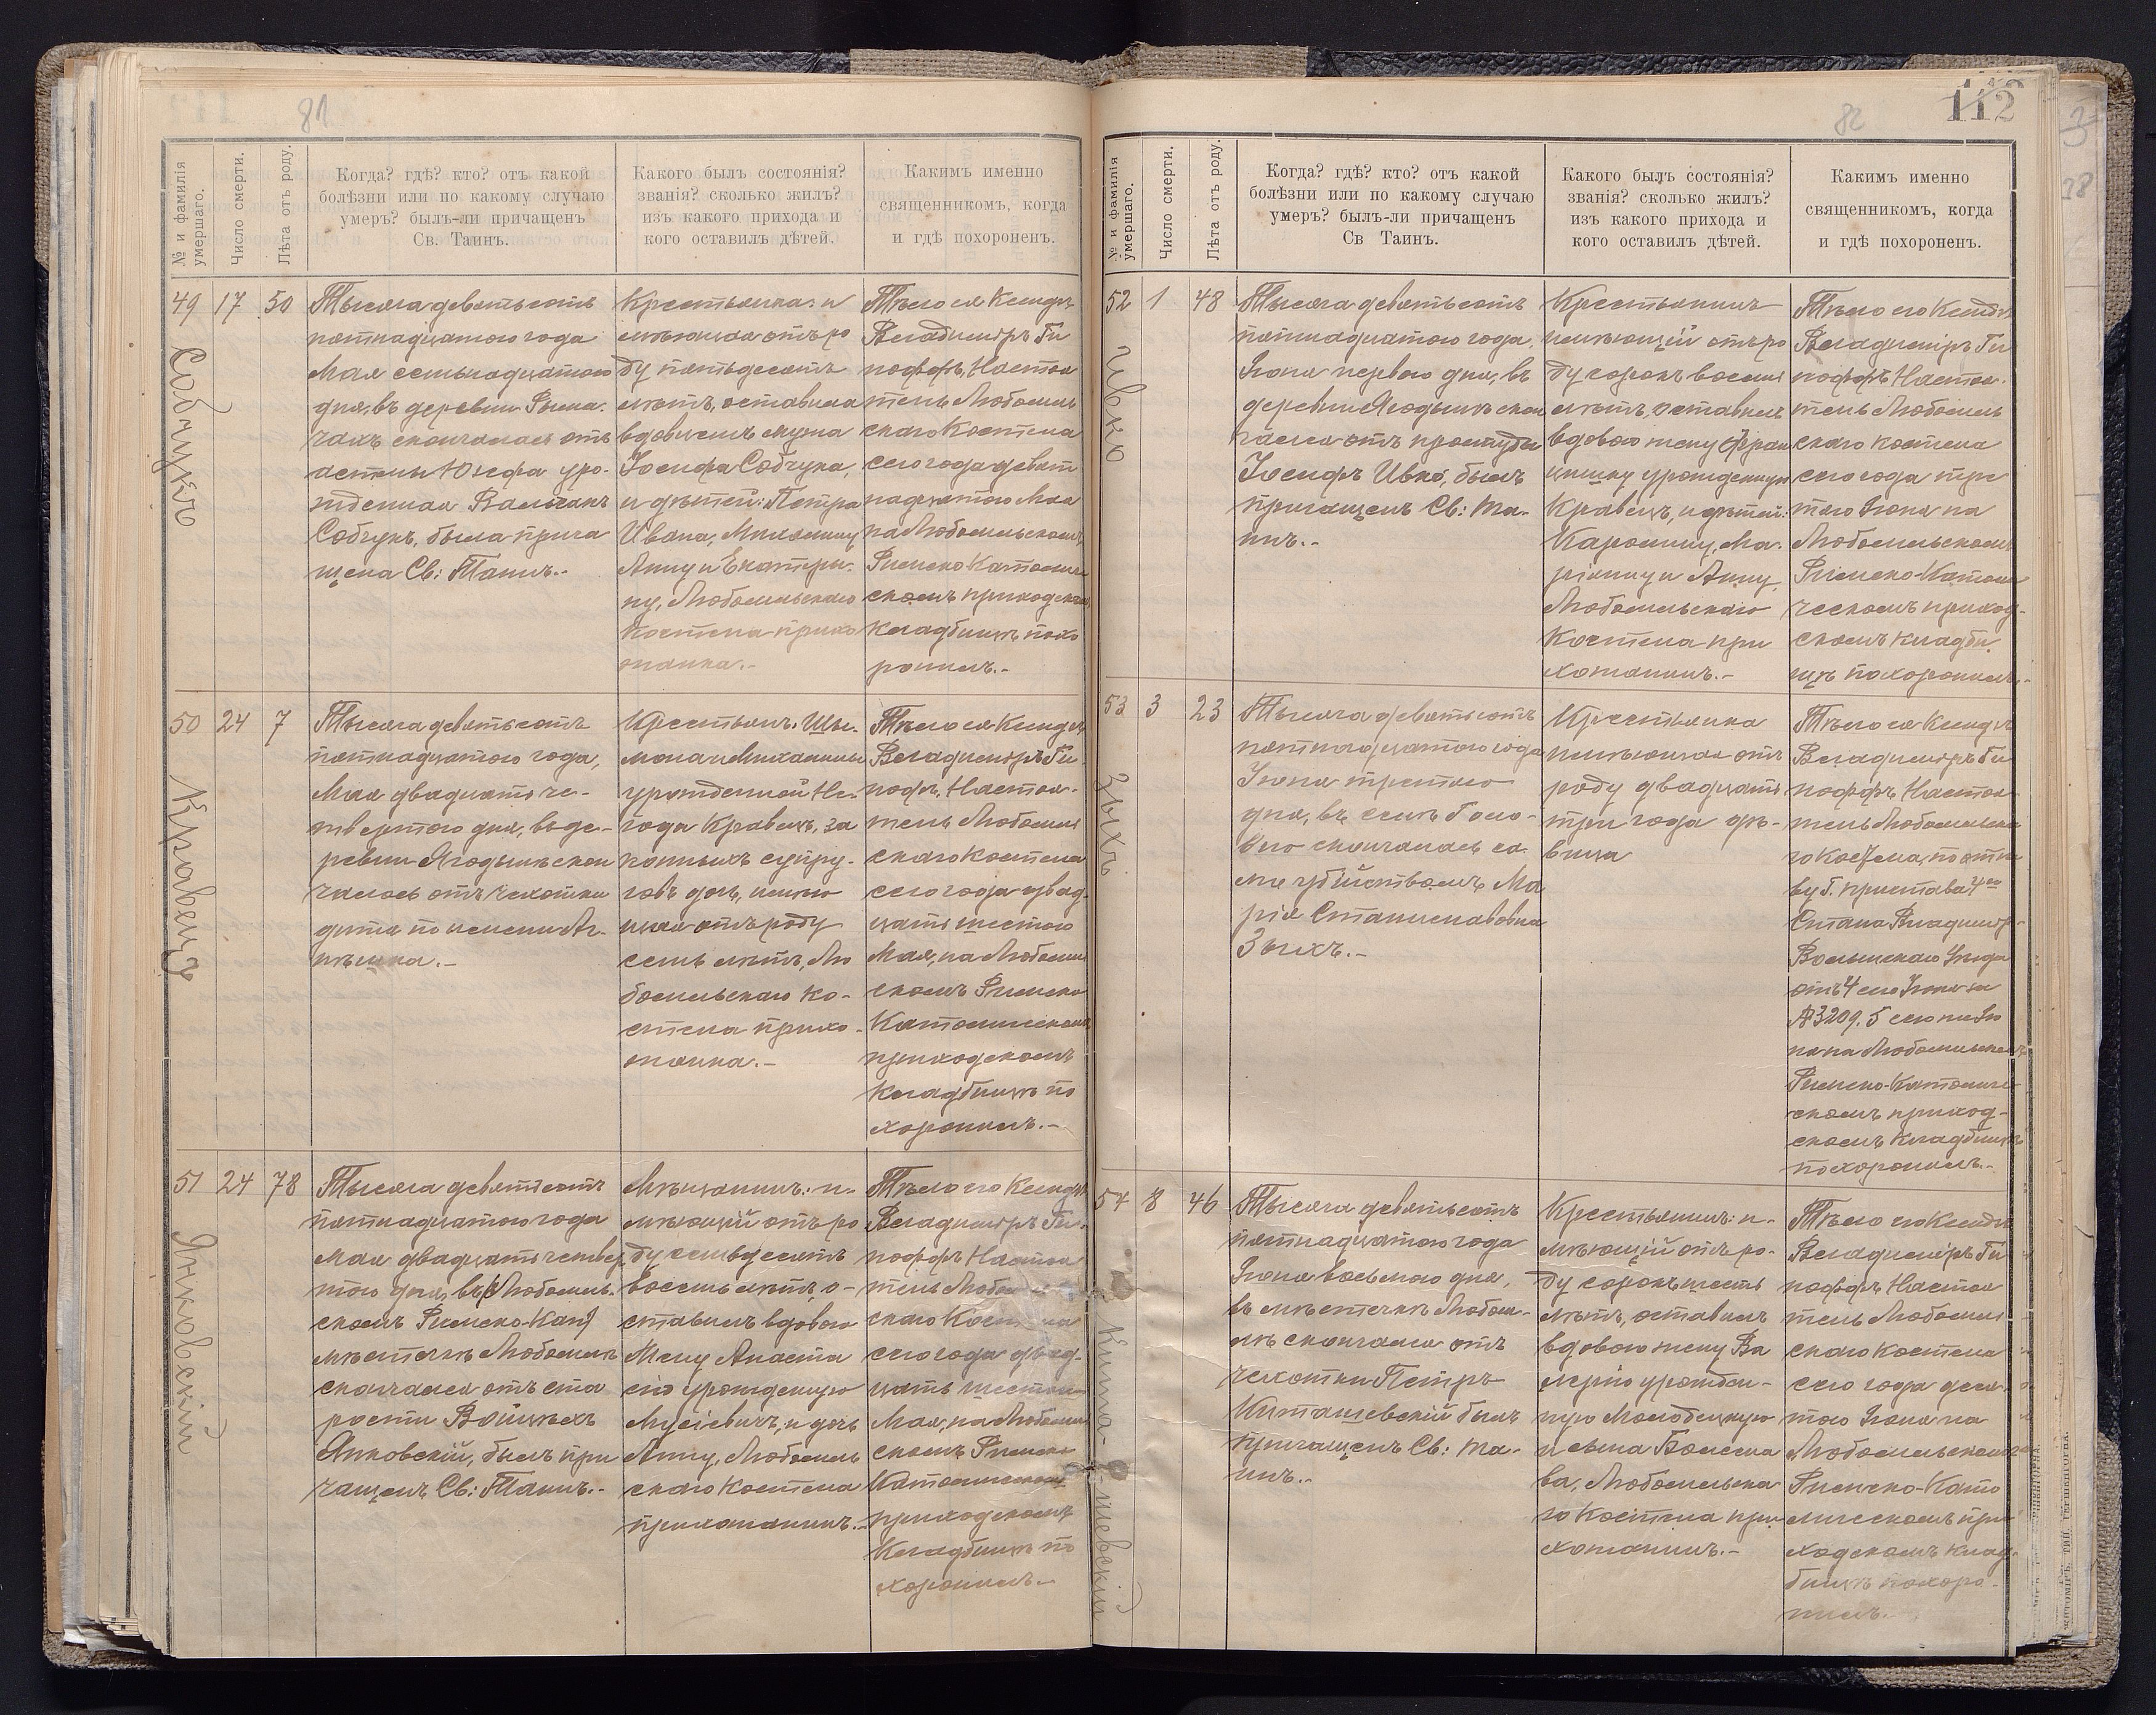 81
№ и фамилія умершаго.
Число смерти.
Лѣта отъ роду.
Когда? гдѣ? кто? отъ какой
болѣзни или по какому случаю
умеръ? былъ-ли причащенъ
Св. Таинъ.
Какого былъ состоянія?
званія? сколько жилъ?
изъ какого прихода и
кого оставилъ дѣтей.
Какимъ именно
священникомъ, когда
и гдѣ похороненъ.
49 17 50
Собчукъ
Тысяча девятьсотъ
пятнадцатого года
Мая семьнадцатого
дня, въ деревни
чахъ скончалась отъ
астмы Юзефа уро-
жденная
Собчукъ, была прича
щена Св: Таинъ.-
Крестьянка: и
мѣющая отъ ро
ду пятьдесятъ
лѣтъ, оставила
вдовцемъ мужа
Іосифа Собчука,
и дѣтей: Петра
Ивана, Михалину
Анну и Екатери-
ну, Любомльскаго
костела прихо
жанка.-
Тѣло ея Ксендзъ
Владиміръ Ги
поффъ, Настоя
тель Любомль
скаго Костела
сего года девят
надцатого Мая
на Любомльскомъ
Римско Католиче
скомъ приходскомъ
кладбищѣ похо
ронилъ.-
50 24 7
Кравецъ
Тысяча девятьсотъ
пятнадцатого года,
Мая двадцать че-
твертого дня, въ де-
ревни Ягодынѣ скон
чалось отъ чахотки
дитя по имени Аг-
нѣшка.-
Крестьянъ: Шы-
мона и Михалины
урожденной Не-
года Кравецъ, за
конныхъ супру-
говъ дочь, имѣю
щая отъ роду
семь лѣтъ, Лю
бомльскаго ко-
стела прихо-
жанка.-
Тѣло ея Ксендзъ
Владиміръ Ги
пофъ, Настоя-
тель Любомль
скаго Костела
сего года двад-
цать шестого
Мая, на Любомль
скомъ Римско
Католическомъ
приходскомъ
Кладбищѣ по
хоронилъ.-
51 24 78
Янковскій
Тысяча девятьсотъ
пятнадцатого года
Мая двадцать четвер
того дня, въ (Любомль-
скомъ Римско-Кат)
мѣстечкѣ Любомлѣ
скончался отъ ста
рости Войцѣхъ
Янковскій, былъ при
чащенъ Св: Таинъ.-
Мѣщанинъ: и-
мѣющій отъ ро
ду семьдесятъ
восемь лѣтъ, о-
ставилъ вдовою
Жену Анаста
сію урожденную
Мусіевичъ, и дочь
Анну, Любомль
скаго Костела
прихожанинъ.-
Тѣло его Ксендзъ
Владиміръ Ги-
поффъ Настоя
тель Любомль
скаго Костела
сего года двад-
цать шестого
Мая, на Любомль
скомъ Римско
Католическомъ
приходскомъ
Кладбищѣ по
хоронилъ.-
82
112
№ и фамилія умершаго.
Число смерти.
Лѣта отъ роду.
Когда? гдѣ? кто? отъ какой
болѣзни или по какому случаю
умеръ? былъ-ли причащенъ
Св Таинъ.
Какого былъ состоянія?
званія? сколько жилъ?
изъ какого прихода и
кого оставилъ дѣтей.
Какимъ именно
священникомъ, когда
и гдѣ похороненъ.
52 1 48
Ивко
Тысяча девятьсотъ
пятнадцатого года,
Іюня первого дня, въ
деревни Ягодынѣ скон
чался отъ простуды
Іосифъ Ивко, былъ
причащенъ Св: Та-
инъ.-
Крестьянинъ
имѣющій отъ ро
ду сорокъ восемь
лѣтъ, оставилъ
вдовою жену Фран
цишку урожденную
Кравецъ, и дѣтей:
Каролину, Ма-
ріянну и Анну,
Любомльскаго
Костела при
хожанинъ.-
Тѣло его Ксендзъ
Владиміръ Ги
поффъ Настоя-
тель Любомль
скаго костела
сего года тре
тяго Іюня на
Любомльскомъ
Римско-Католи
ческомъ приход-
скомъ кладби-
щѣ похоронилъ.-
53 3 23
Зыхъ
Тысяча девятьсотъ
пятнадцатого года
Іюня третяго
дня, въ селѣ
скончалась са
мѵбійствомъ Ма
рія Станиславовна
Зыхъ.-
Крестьянка
имѣющая отъ
роду двадцать
три года дѣ-
вица
Тѣло ея Ксендзъ
Владиміръ Ги
поффъ Настоя
тель Любомльска
го Костела, по
ву Г. пристава 4го
Стана Владимір-
Волынскаго Уѣзда
отъ 4 сего Іюня за
№ 3209. 5 сего
на Любомльскомъ
Римско-Католиче
скомъ приход-
скомъ Кладбищѣ
похоронилъ.-
54 8 46
Киташевскій
Тысяча девятьсотъ
пятнадцатого года
Іюня восьмого дня,
въ мѣстечкѣ Любом-
лѣ скончался отъ
чахотки Петръ
Киташевскій былъ
причащенъ Св: Та-
инъ.-
Крестьянинъ: и-
мѣющій отъ ро-
ду сорокъ шесть
лѣтъ, оставилъ
вдовою жену Ва
лерію урожден-
ную Молодецкую
и сына Болесла
ва, Любомльска
го Костела при
хожанинъ.-
Тѣло его Ксендзъ
Владиміръ Ги
поффъ Настоя
тель Любомль
скаго костела
сего года деся
того Іюня на
Любомльскомъ
Римско-Като
лическомъ при
ходскомъ клад-
бищѣ похоро-
нилъ.-